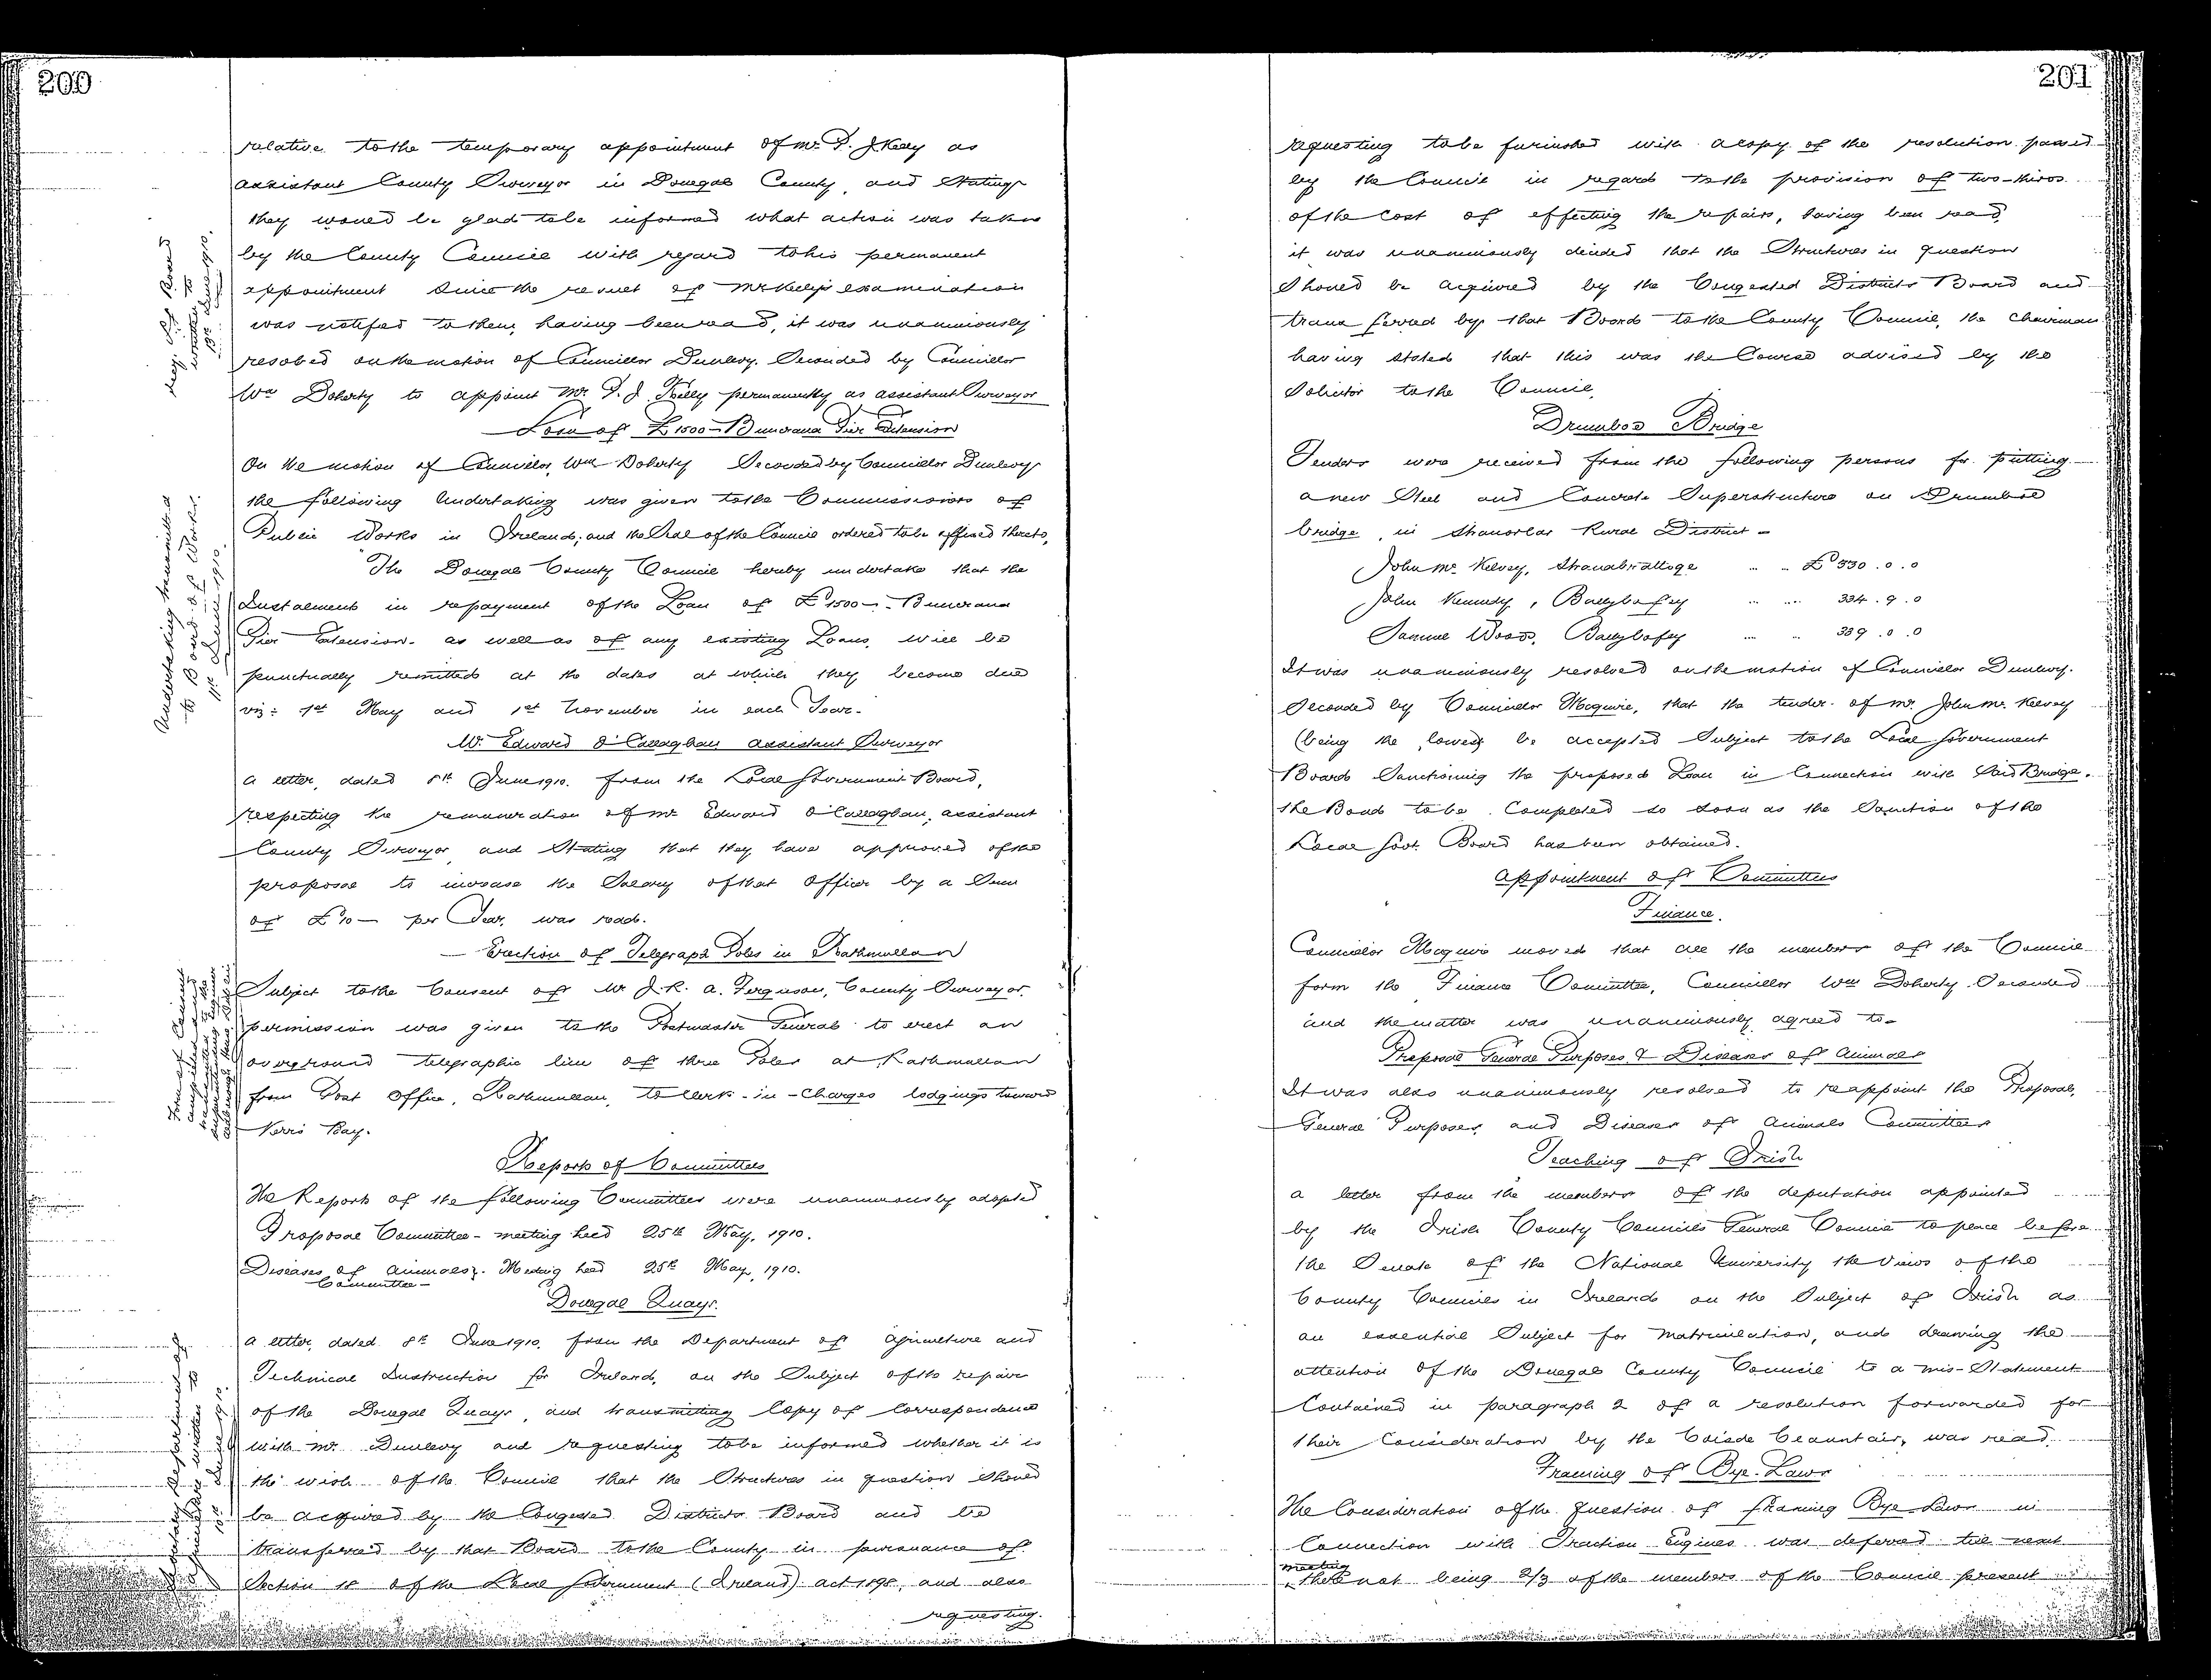 200
relative to the temporary appointment of Mr. P. J. Kelly as
assistant County Surveyor in Donegal County, and Stating
they would be glad to be informed what action was taken
by the County Council with regard to his permanent
appointment since the result of Mr Kelly's examination
was notified to them, having been read, it was unanimously
resolved on the motion of Councillor Dunlevy. Seconded by Councillor
Wm Doherty to appoint Mr. P. J. Kelly permanently as assistant Surveyor
Loan of £1500 - Buncrana Pier Extension
On the motion of Councillor Wm Doherty Seconded by Councillor Dunlevy
the following Undertaking was given to the Commissioners of
Public Works in Ireland; and the Seal of the Council ordered to be affixed thereto,
"The Donegal County Council hereby undertake that the
Instalments in repayment of the Loan of £1500 - Buncrana
Pier Extension - as well as of any existing Loans, will be
punctually remitted at the dates at which they become due
viz: 1st May and 1st November in each Year.
Mr. Edward O'Callaghan assistant Surveyor
a letter, dated 8th June 1910. from the Local Government Board,
respecting the remuneration of Mr Edward O'Callaghan, assistant
County Surveyor and Stating that they have approved of the
proposal to increase the Salary of that Officer by a Sum
of £10 - per Year, was read.
Erection of Telegraph Poles in Rathmullan
Subject to the Consent of Mr J. R. A. Ferguson, County Surveyor,
permission was given to the Postmaster General to erect an
overground telegraphic line of three Poles at Rathmullan
from Post Office, Rathmullan, to Clerk-in-Charges lodgings toward
Kerrs Bay.
Reports of Committees
The Reports of the following Committees were unanimously adopted
Proposal Committee - meeting held 25th May, 1910.
Diseases of Animals Committee - Meeting held 25th May, 1910.
Donegal Quays.
a letter, dated 8th June 1910, from the Department of Agriculture and
Technical Instruction for Ireland, on the Subject of the repair
of the Donegal Quays, and transmitting Copy of Correspondence
with Mr. Dunlevy and requesting to be informed whether it is
the wish of the Council that the Structures in question should
be acquired by the Congested Districts Board and be
transferred by that Board to the County in pursuance of
Section 18 of the Local Government (Ireland) Act 1898, and also
requesting.
Undertaking transmitted
to Board of Works.
11th June 1910.
201
requesting to be furnished with a copy of the resolution passed
by the Council in regard to the provision of two-thirds
of the Cost of effecting the repairs, having been read,
it was unanimously decided that the Structures in question
Should be acquired by the Congested Districts Board and
transferred by that Board to the County Council, the Chairman
having stated that this was the Course advised by the
Solicitor to the Council.
Drumboe Bridge
Tenders were received from the following persons for putting
a new Steel and Concrete Superstructure on Drumboe
bridge, in Stranorlar Rural District -
John McKelvey, Stranabrattoge £330.0.0
John Kennedy, Ballybofey 334.9.0
Samuel Woods, Ballybofey 339.0.0
It was unanimously resolved on the motion of Councillor Dunlevy.
Seconded by Councillor Maguire, that the tender of Mr. John McKelvey
(being the lowest be accepted Subject to the Local Government
Boards Sanctioning the proposed Loan in Connection with Said Bridge.
the Bond to be Completed so soon as the Sanction of the
Local Govt. Board has been obtained.
Appointment of Committees
Finance.
Councillor Maguire moved that all the members of the Council
form the Finance Committee, Councillor Wm Doherty Seconded
and the matter was unanimously agreed to -
Proposal General Purposes & Diseases of Animals
It was also unanimously resolved to reappoint the Proposal,
General Purposes, and Diseases of Animals Committees
Teaching of Irish
a letter from the members of the deputation appointed
by the Irish County Councils General Council to place before
the Senate of the National University the views of the
County Councils in Ireland on the Subject of Irish as
an essential Subject for Matriculation, and drawing the
attention of the Donegal County Council to a mis-Statement
Contained in paragraph 2 of a resolution forwarded for
their Consideration by the Coisde Ceanntair, was read.
Framing of Bye-Laws
The Consideration of the question of framing Bye Laws in
Connection with Traction Engines was deferred till next
meeting there not being 2/3 of the members of the Council present